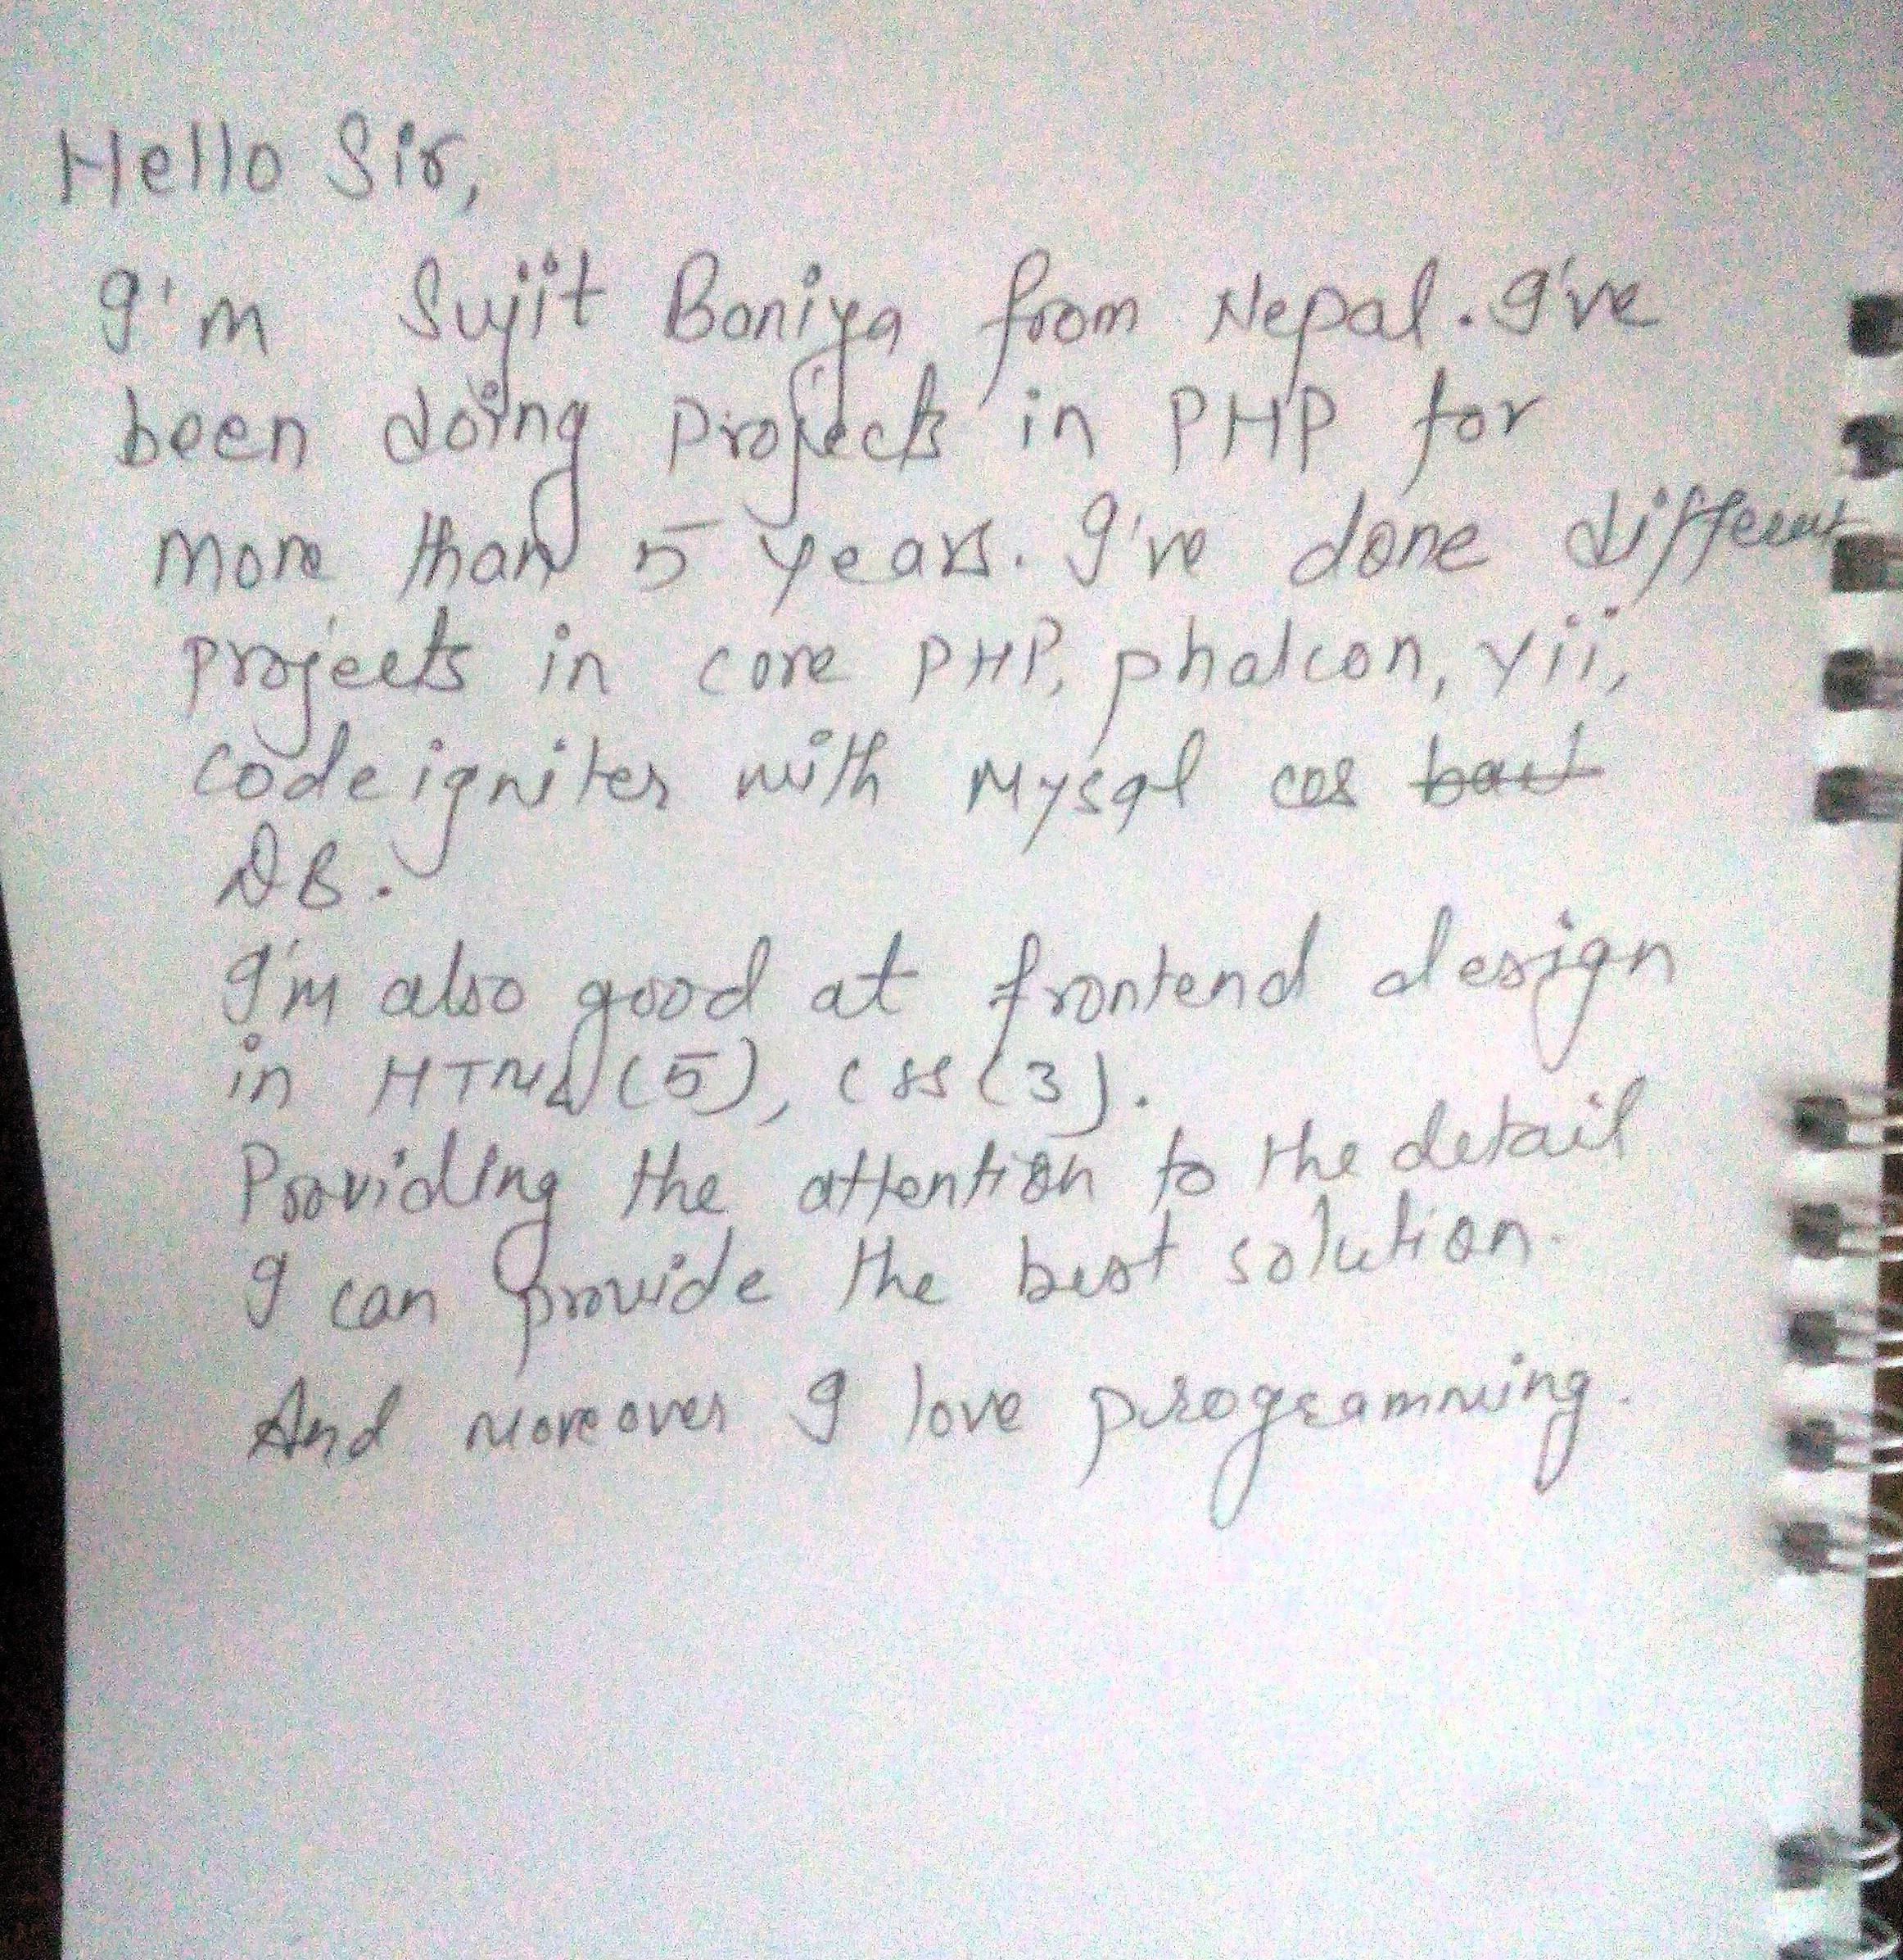 Hello Sir,
I'm Sujit Baniya from Nepal. I've
been doing projects in PHP for
more than 5 years. I've done different
projects in core PHP, phalcon, yii,
codeigniter with Mysql as
DB.
I'm also good at frontend design
in HTML(5), CSS(3).
Providing the attention to the detail
I can provide the best solution.
And moreover I love programming.